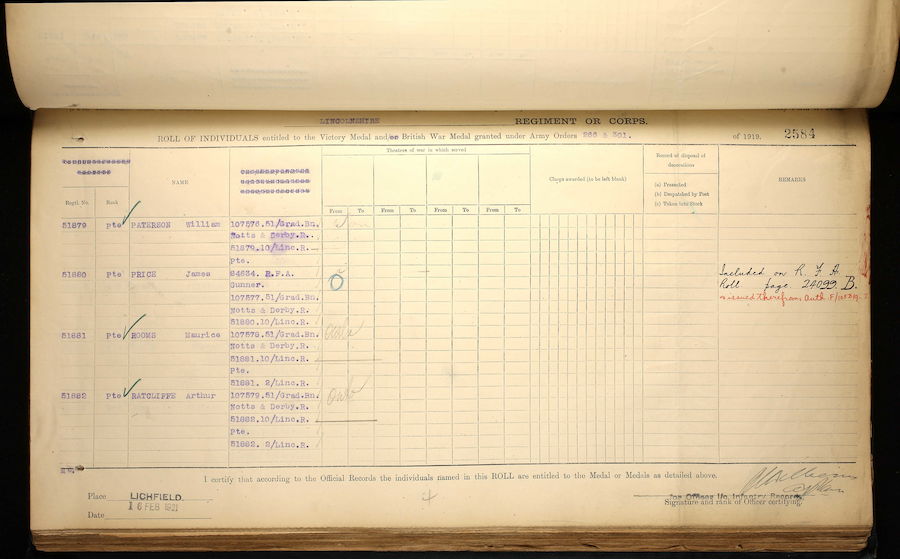 LINCOLNSHIRE REGIMENT OR CORPS.
ROLL OF INDIVIDUALS entitled to the Victory Medal and/or British War Medal granted under Army Orders 266 & 301. of 1919. 2584
Theatres of war in which served
Record of disposal of decorations
NAME
Clasps awarded (to be left blank)
REMARKS
(a) Presented
(b) Despatched by Post
(c) Taken into Stock
Regtl. No. Rank
From To From To From To From To
51879 Pte PATERSON William 107576.51/Grad.Bn.
Notts & Derby.R.
51879.10/Linc.R.
Pte.
51880 Pte PRICE James 84634. R.F.A. Included on R. F. A.
Gunner. Roll page 24099. B.
107577.51/Grad.Bn. issued therefrom Auth
Notts & Derby.R.
51880.10/Linc.R.
51881 Pte ROOMS Maurice 107578.51/Grad.Bn.
Notts & Derby.R.
51881.10/Linc.R.
Pte.
51881. 2/Linc.R.
51882 Pte RATCLIFFE Arthur 107579.51/Grad.Bn.
Notts & Derby.R.
51882.10/Linc.R.
Pte.
51882. 2/Linc.R.
I certify that according to the Official Records the individuals named in this ROLL are entitled to the Medal or Medals as detailed above.
Place LICHFIELD.
16 FEB 1921
for Officer i/c, Infantry Records,
Date
Signature and rank of Officer certifying.